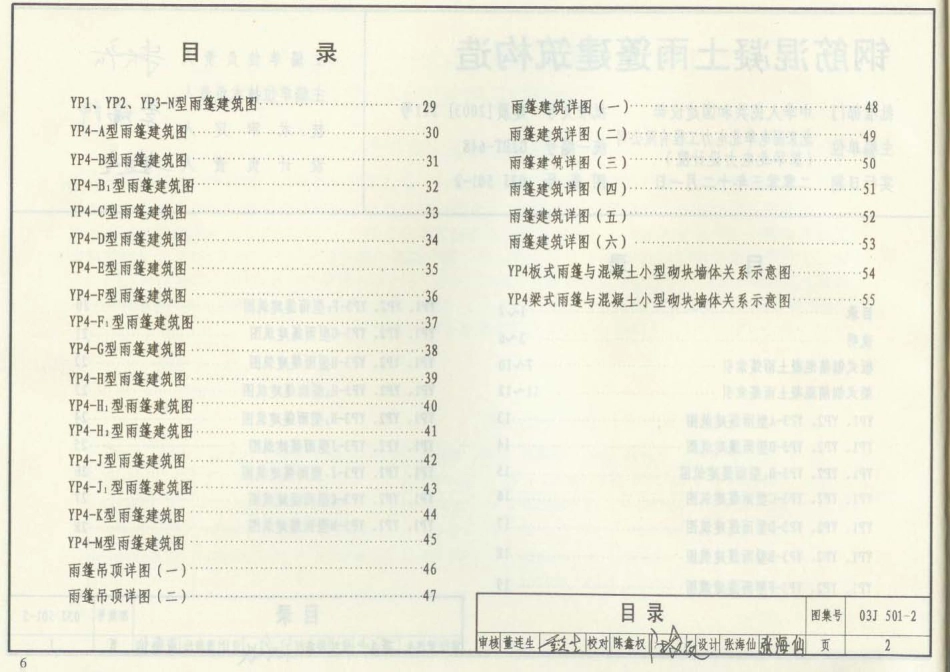 目 录
YP1、YP2、YP3-N型雨篷建筑图 29
YP4-A型雨篷建筑图 30
YP4-B型雨篷建筑图 31
YP4-B₁型雨篷建筑图 32
YP4-C型雨篷建筑图 33
YP4-D型雨篷建筑图 34
YP4-E型雨篷建筑图 35
YP4-F型雨篷建筑图 36
YP4-F₁型雨篷建筑图 37
YP4-G型雨篷建筑图 38
YP4-H型雨篷建筑图 39
YP4-H₁型雨篷建筑图 40
YP4-H₂型雨篷建筑图 41
YP4-J型雨篷建筑图 42
YP4-J₁型雨篷建筑图 43
YP4-K型雨篷建筑图 44
YP4-M型雨篷建筑图 45
雨篷吊顶详图(一) 46
雨篷吊顶详图(二) 47
雨篷建筑详图(一) 48
雨篷建筑详图(二) 49
雨篷建筑详图(三) 50
雨篷建筑详图(四) 51
雨篷建筑详图(五) 52
雨篷建筑详图(六) 53
YP4板式雨篷与混凝土小型砌块墙体关系示意图 54
YP4梁式雨篷与混凝土小型砌块墙体关系示意图 55
目 录 图集号 03J 501-2
审核 董连生 校对 陈鑫权 设计 张海仙 张海仙 页 2
6